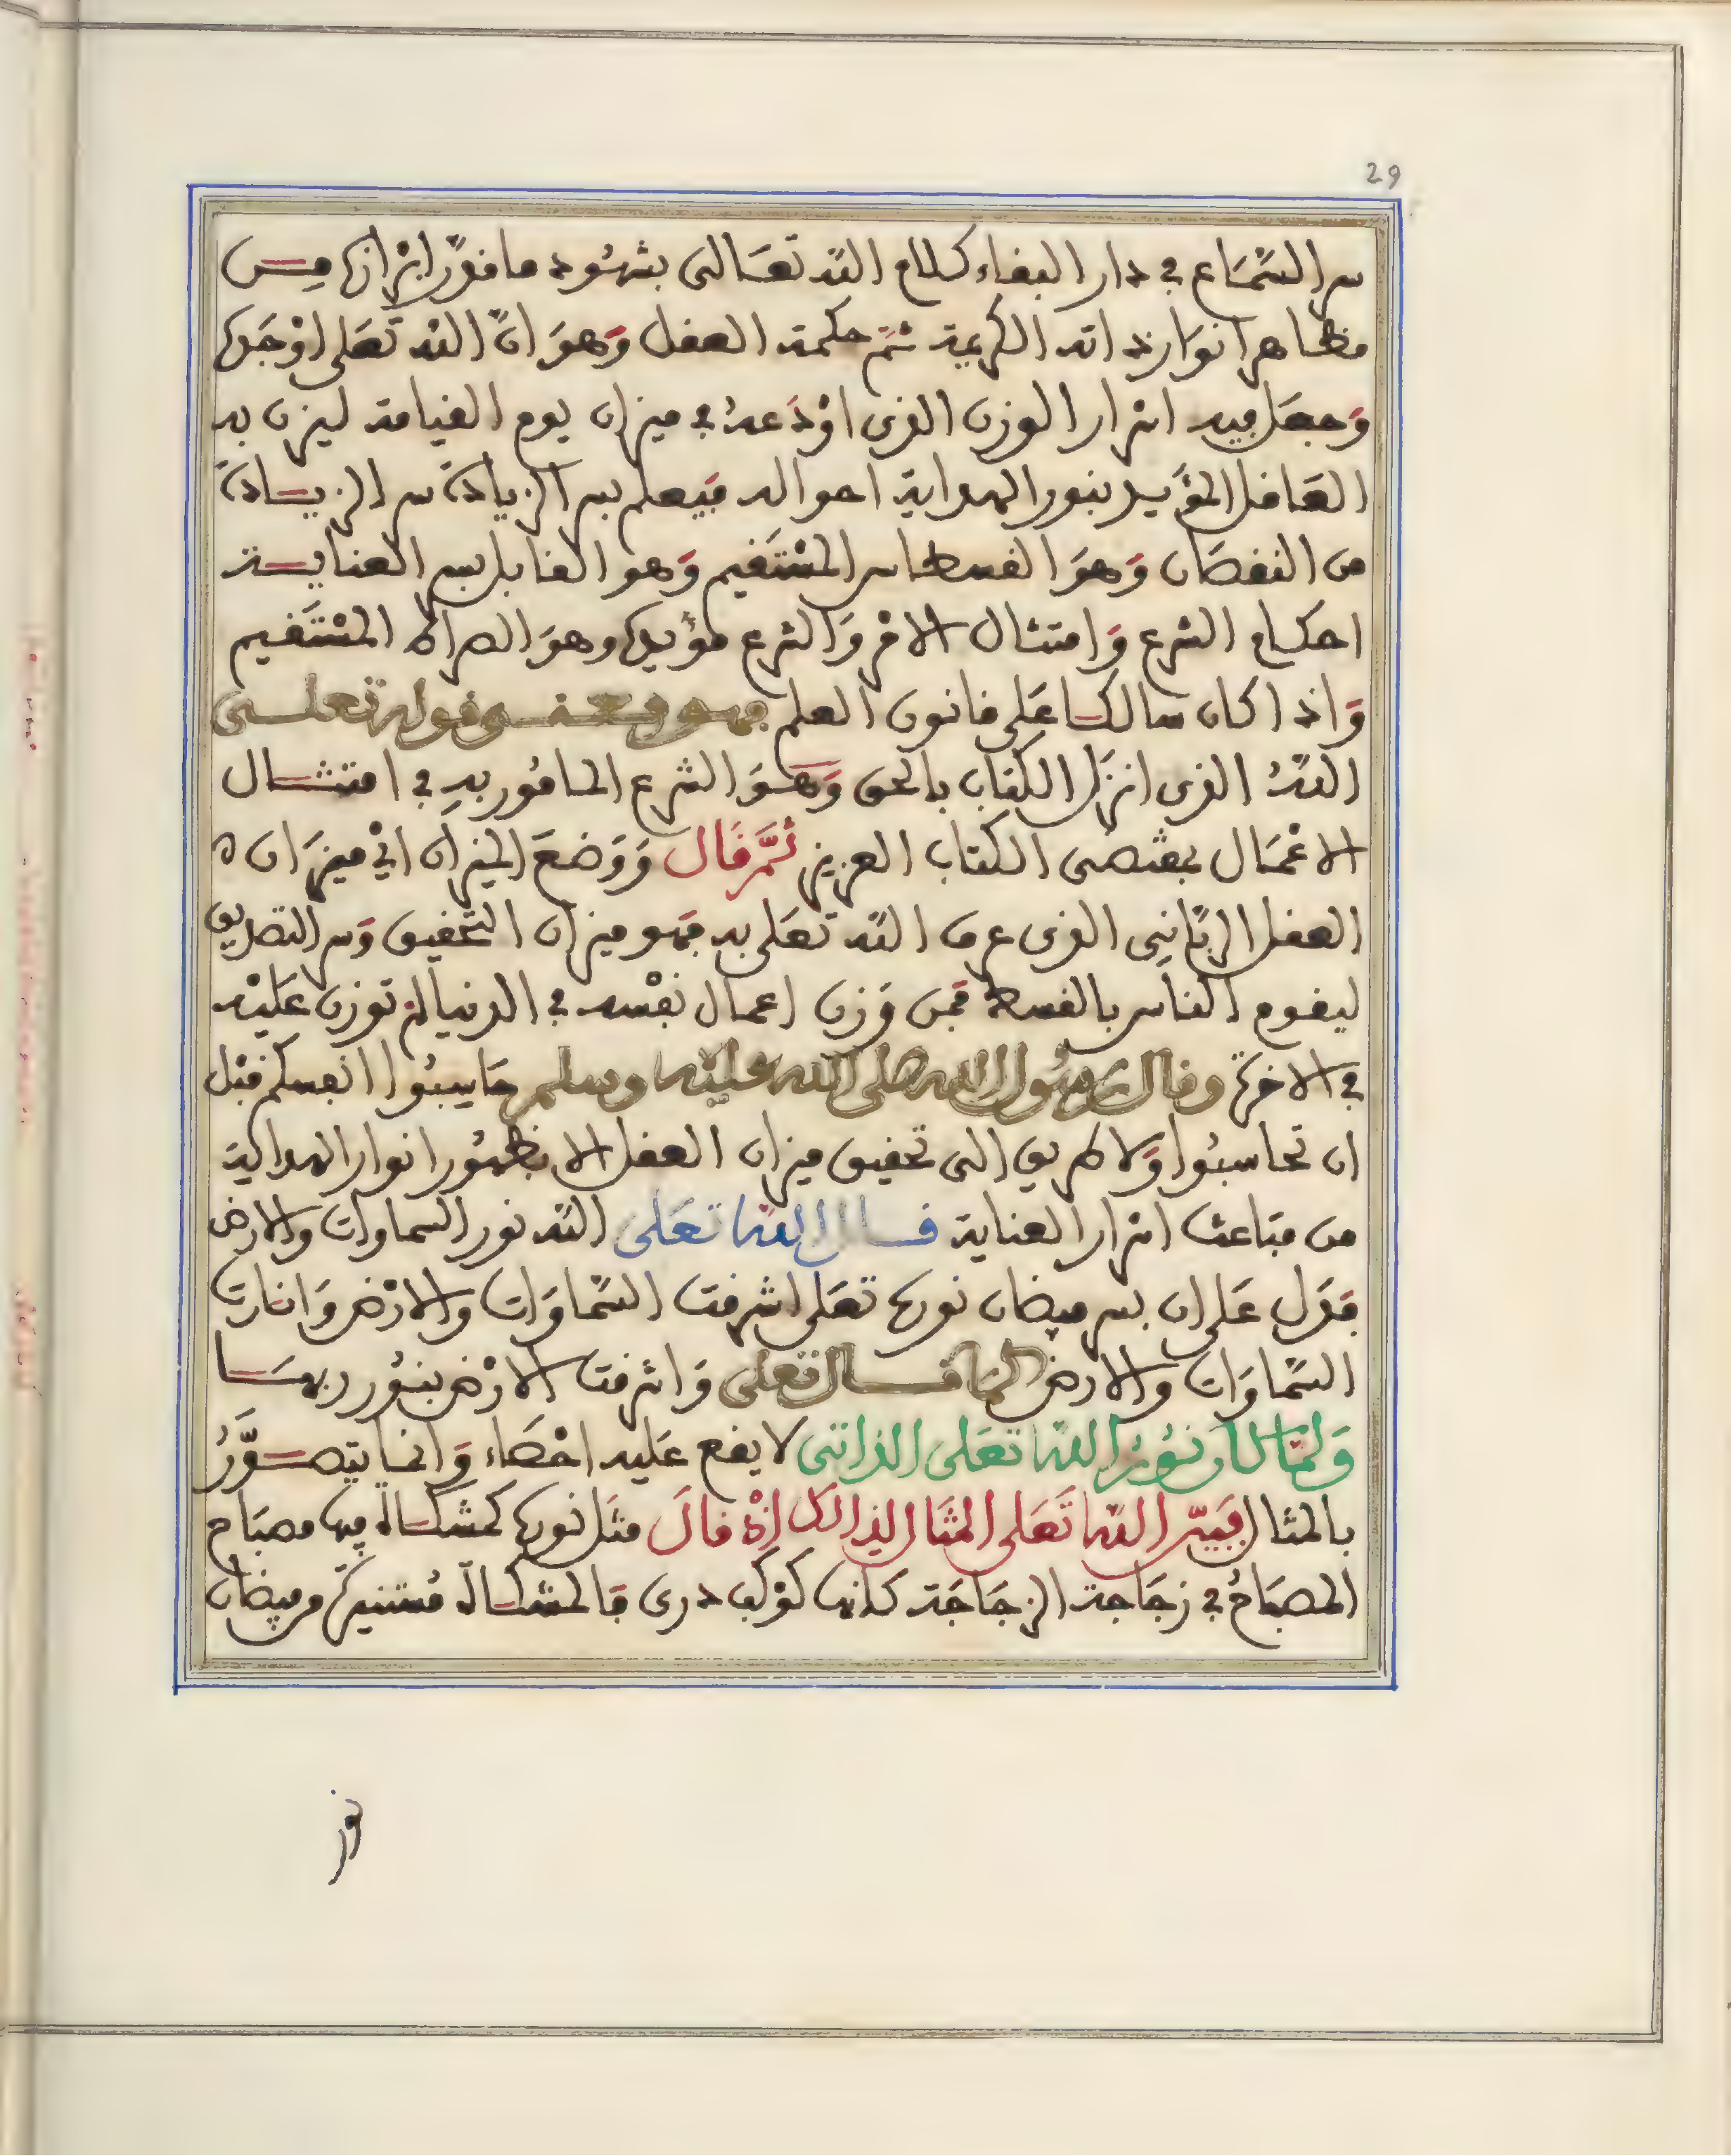 29
سر السَّمَاع في دار البقاء كلام الله تعَالى بشهُود ما فوّر ابْرازه مِـن
مظاهر انوَار ذاته الكريمة ثمّ حكمة العقل وَهوَ انّ الله تعَلى اوْجَده
وَجعَل فيه اسْرار الوزن الذى اوْدَعهُ في ميزان يوم القيامة ليزن به
العَاقل المؤَيد بنور الهداية احواله فيعلم بسر الزيادة سر الزيـادة
من النقصَان وَهوَ القسطاس المسْتَقيم وَهو القابل بسر العنايـة
احكام الشرع وَامتثال الامْر وَالشرع مؤيده وهوَ الصراط المسْتَقيم
وَاذا كان سالكـا عَلى قانون العلم فهـو معـنـى قوله تعلـى
اللهُ الذى انزَل الكتاب بالحق وَهـوَ الشرع المامُور بهِ في امتثـال
الاعْمَال بمقتضى الكتاب العزيز ثمَّ قَال وَوَضعَ الميزان ايْ ميزَان ه
العقل الربّانِى الذى عرف الله تعَلى به فهو ميزان التحْقيق وَسر التصديق
ليقوم الناس بالقسط فمَن وَزن اعمال نفْسه في الدنيا لم توزن عَليْه
في الاخرة وقال رسُول الله صلى الله عليْه وسلم حَاسِبُوا انفسكم قبْل
ان تحاسبُوا وَلا طريق الى تحقيق ميزان العقل الا بظهُور انوار الهداية
من مبَاعث اسْرار العناية قـال الله تعَلى الله نور السماوات والارض
فدَل عَلى ان بسر فيضان نوره تعَلى اشرقت السّماوَات والارْض وَانارت
السّماوَات والارض كمَا قـال تعَلى وَاشرقت الارْض بنُور ربهـَا
وَلمّا كان نُورُ الله تعَلى الذاتى لا يقع عَليه احْصَاء وَانما يتصـوَّرُ
بالمثال فبَيّن الله تَعَلى المثَال لذالك اذْ قالَ مثَل نوره كمشكـاة فيها مصبَاح
المصبَاحُ في زجَاجة الزجَاجَة كانها كوْكب درى فالمشكـاة مُستنيرَة من فيضان
نور